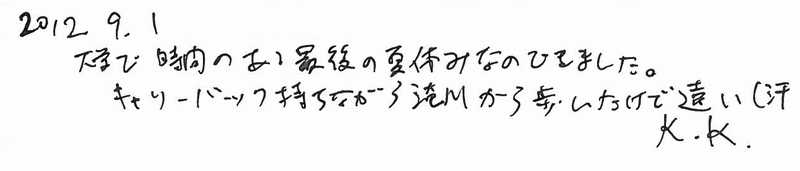 2012 9.1
大学で時間のある最後の夏休みなのできました。
キャリーバック持ちながら滝川から歩いたけど遠い(汗
K.K.